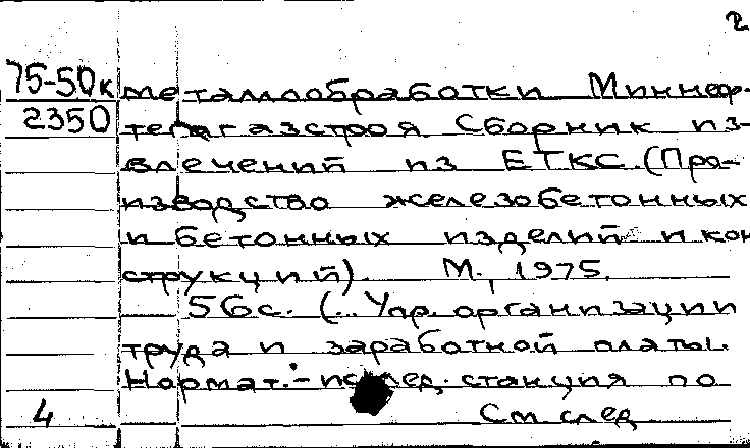 2
75-50к металлообработки Миннеф-
2350 тегазстроя Сборник из-
влечений из ЕТКС. (Про-
изводство железобетонных
и бетонных изделий и кон
струкций). М., 1975.
56с. (... Упр. организации
труда и заработной платы.
Нормат.-исслед. станция по
4 См. след